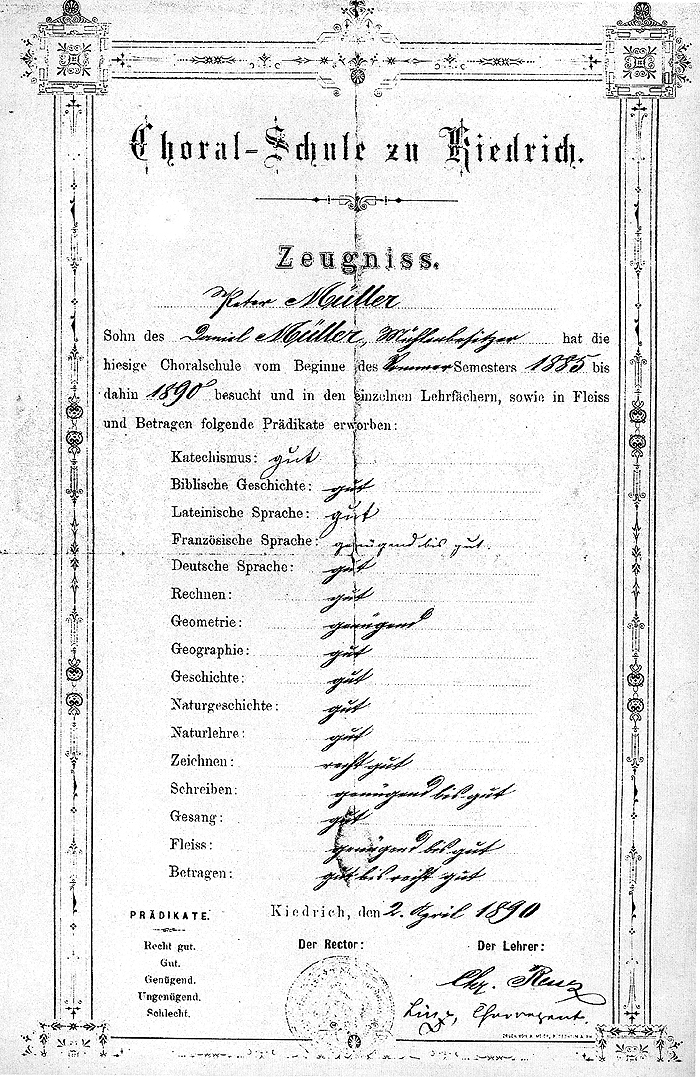 Choral-Schule zu Kiedrich.
Zeugniss.
Peter Müller
Sohn des Daniel Müller, Mühlenbesitzer hat die
hiesige Choralschule vom Beginne des Sommer Semesters 1885 bis
dahin 1890 besucht und in den einzelnen Lehrfächern, sowie in Fleiss
und Betragen folgende Prädikate erworben:
Katechismus: gut
Biblische Geschichte: gut
Lateinische Sprache: gut
Französische Sprache: genügend bis gut.
Deutsche Sprache: gut
Rechnen: gut
Geometrie: genügend
Geographie: gut
Geschichte: gut
Naturgeschichte: gut
Naturlehre: gut
Zeichnen: recht gut
Schreiben: genügend bis gut
Gesang: gut
Fleiss: genügend bis gut
Betragen: gut bis recht gut
Kiedrich, den 2. April 1890
PRÄDIKATE.
Recht gut.
Gut.
Genügend.
Ungenügend.
Schlecht.
Der Rector:
Der Lehrer:
Chorregent.